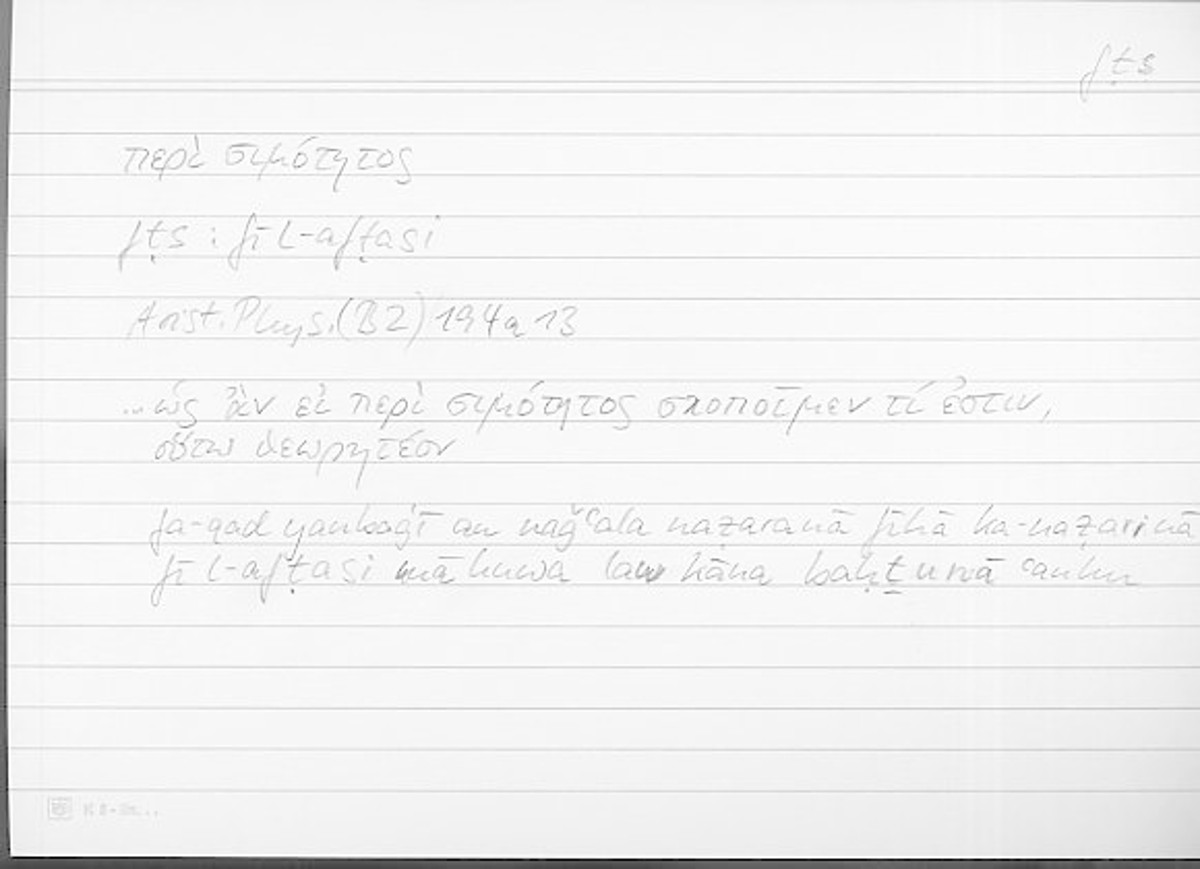 fṭs
περὶ σιμότητος
fṭs : fī l-afṭasi
Arist. Phys. (B2) 194a13
... ὡς ἂν εἰ περὶ σιμότητος σκοποῖμεν τί ἐστιν,
οὕτω θεωρητέον
fa-qad yanbaġī an naǧʿala naẓaranā fīhā ka-naẓarinā
fī l-afṭasi mā huwa law kāna baḥṯunā ʿanhu